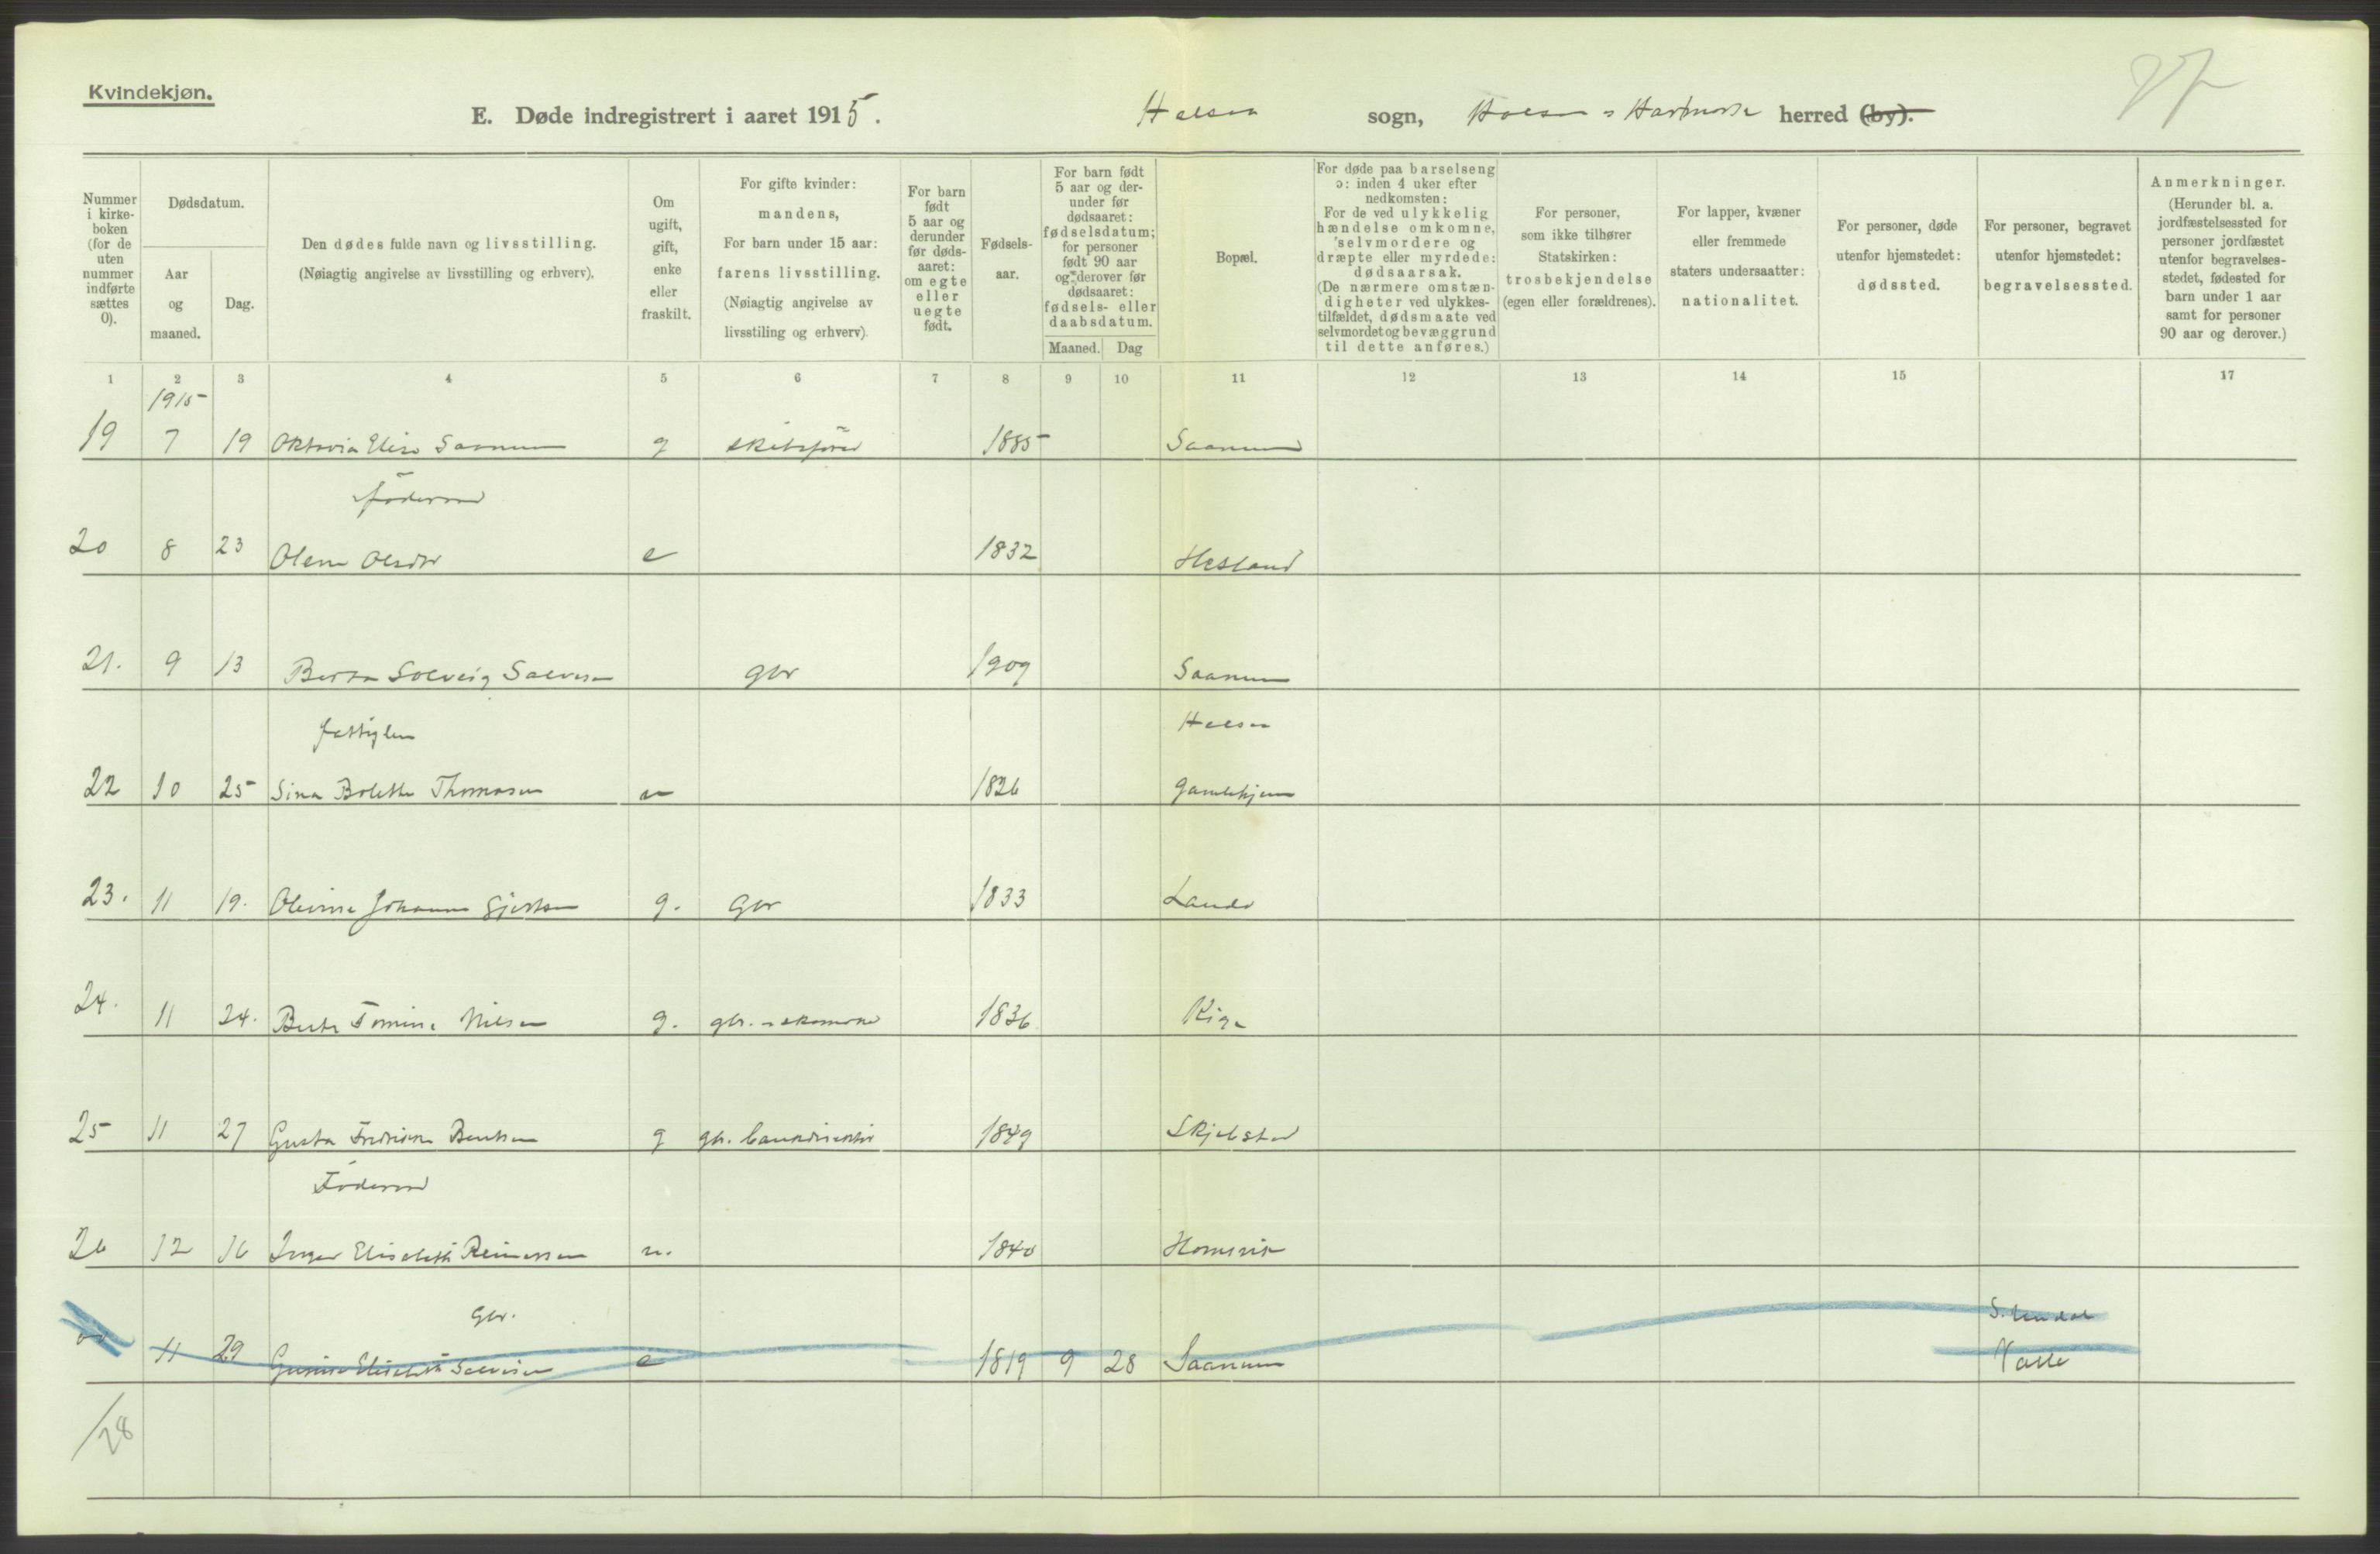 Kvindekjøn.
E. Døde indregistrert i aaret 1915. Halsaa sogn, Halsaa o Hartmark herred (by).
Nummer i kirke-boken (for de uten nummer indførte sættes 0).
Dødsdatum.
Aar og maaned.
Dag.
Den dødes fulde navn og livsstilling.
(Nøiagtig angivelse av livsstilling og erhverv).
Om ugift, gift, enke eller fraskilt.
For gifte kvinder: mandens,
For barn under 15 aar: farens livsstilling.
(Nøiagtig angivelse av livsstiling og erhverv).
For barn født 5 aar og derunder før døds-aaret: om egte eller uegte født.
Fødsels-aar.
For barn født 5 aar og der-under før dødsaaret: fødselsdatum; for personer født 90 aar og derover før dødsaaret: fødsels- eller daabsdatum.
Maaned. Dag
Bopæl.
For døde paa barselseng ɔ: inden 4 uker efter nedkomsten:
For de ved ulykkelig hændelse omkomne, selvmordere og dræpte eller myrdede: dødsaarsak.
(De nærmere omstæn-digheter ved ulykkes-tilfældet, dødsmaate ved selvmordet og bevæggrund til dette anføres.)
For personer, som ikke tilhører Statskirken: trosbekjendelse (egen eller forældrenes).
For lapper, kvæner eller fremmede staters undersaatter: nationalitet.
For personer, døde utenfor hjemstedet: dødssted.
For personer, begravet utenfor hjemstedet: begravelsessted.
Anmerkninger.
(Herunder bl. a. jordfæstelsessted for personer jordfæstet utenfor begravelses-stedet, fødested for barn under 1 aar samt for personer 90 aar og derover.)
1 2 3 4 5 6 7 8 9 10 11 12 13 14 15 17
1915
19 7 19 Oktavia Elise Saanum g skibsfører 1885 Saanum
føderaad
20 8 23 Olene Olsdtr e 1832 Hesland
21. 9 13 Berta Solveig Salvesen gbr 1909 Saanum
fattiglem Halsaa
22 10 25 Sina Bolette Thomasen u 1826 gamlehjem
23. 11 19. Olevine Johanne Gjertsen g. Gbr 1833 Lande
24. 11 24. Berte Tomine Nilsen g. gbr. o skomaker 1836 Kige
25 11 27 Gusta Fredrikke Bentsen g gbr. bankdirektør 1849 Skjebstad
Føderaad
26 12 16 Inger Elisabeth Reinertsen u. 1840 Homsvik
Gbr. S. Undal
11 29 Gunvor Elisabeth Salvesen e 1819 9 28 Saanum Valle
/28